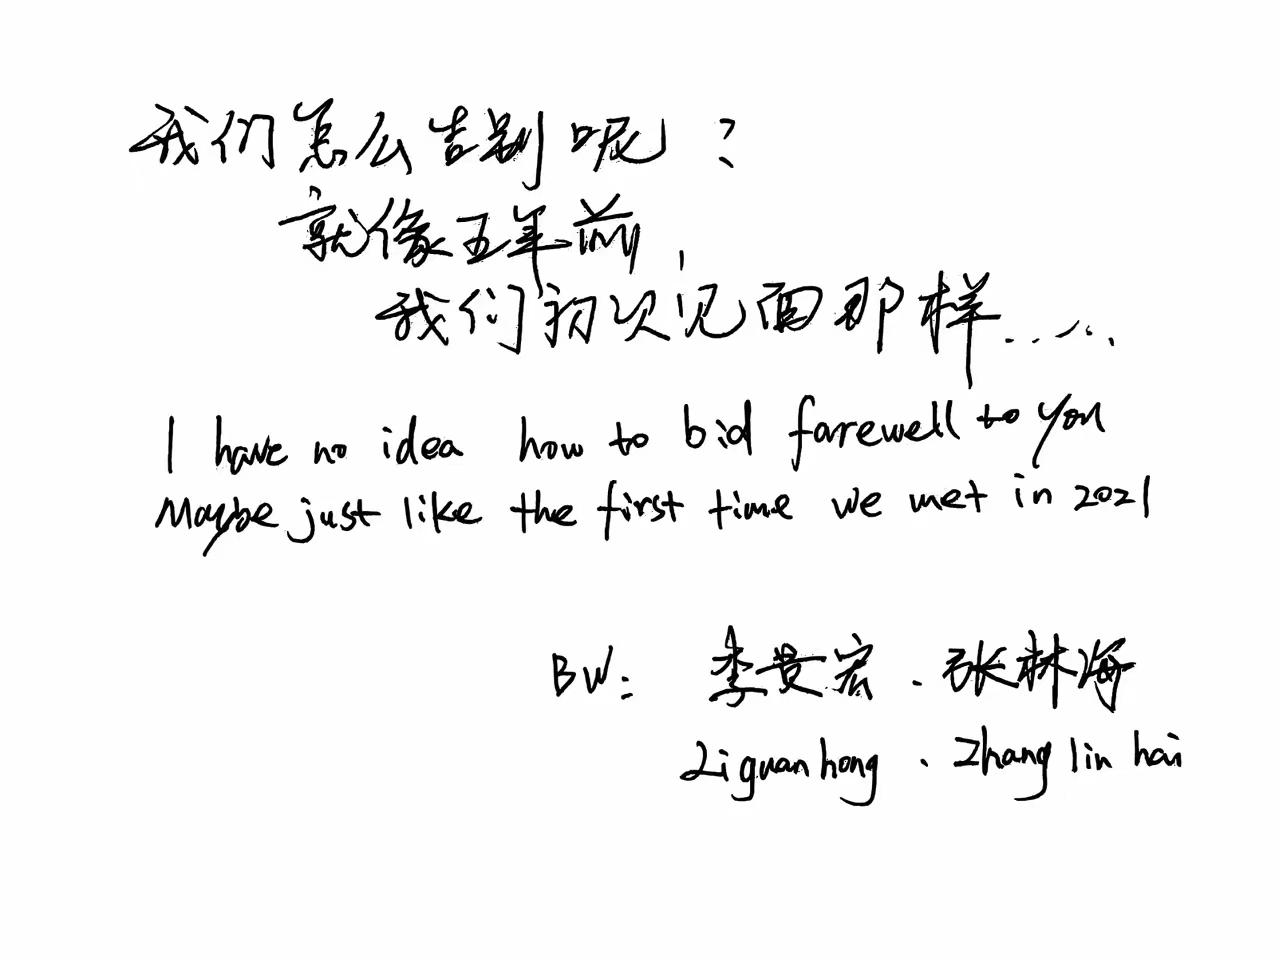 我们怎么告别呢?
就像五年前,
我们初次见面那样......
I have no idea how to bid farewell to you
Maybe just like the first time we met in 2021
BW: 李贯宏.张林海
Li guan hong . Zhang lin hai